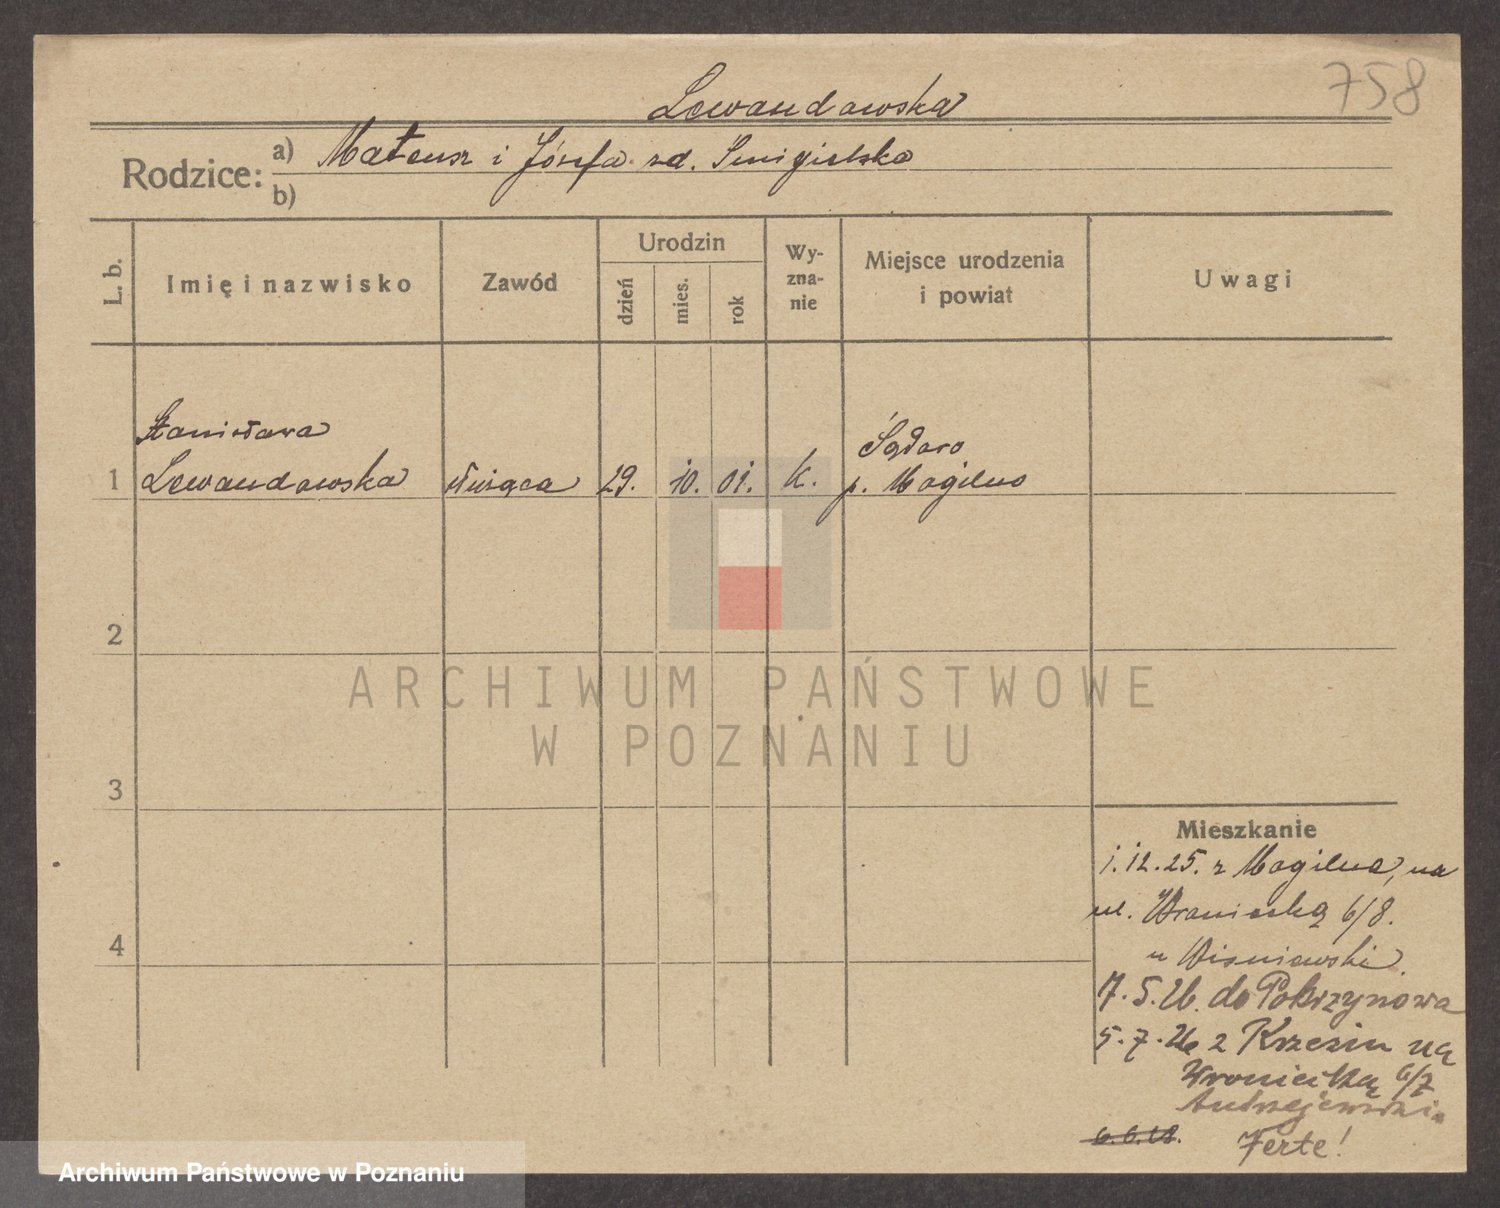 758
Lewandowska
Rodzice: a) Mateusz i Józefa zd. Smigielska
b)
L. b.
Imię i nazwisko
Zawód
Urodzin
dzień
mies.
rok
Wy-
zna-
nie
Miejsce urodzenia
i powiat
Uwagi
Stanisława
1 Lewandowska służąca 29. 10. 01. K.
p. Mogilno
2
3
4
ARCHIWUM PAŃSTWOWE
W POZNANIU
Mieszkanie
1.12.25. z Mogilna, na
ul. 6/8.
u Wisniewski
7.5.26. do Pokrzynowa
5.7.26 z Krzesin na
Wroniecką 6/7
Andrzejewski
6.6.28.
Archiwum Państwowe w Poznaniu